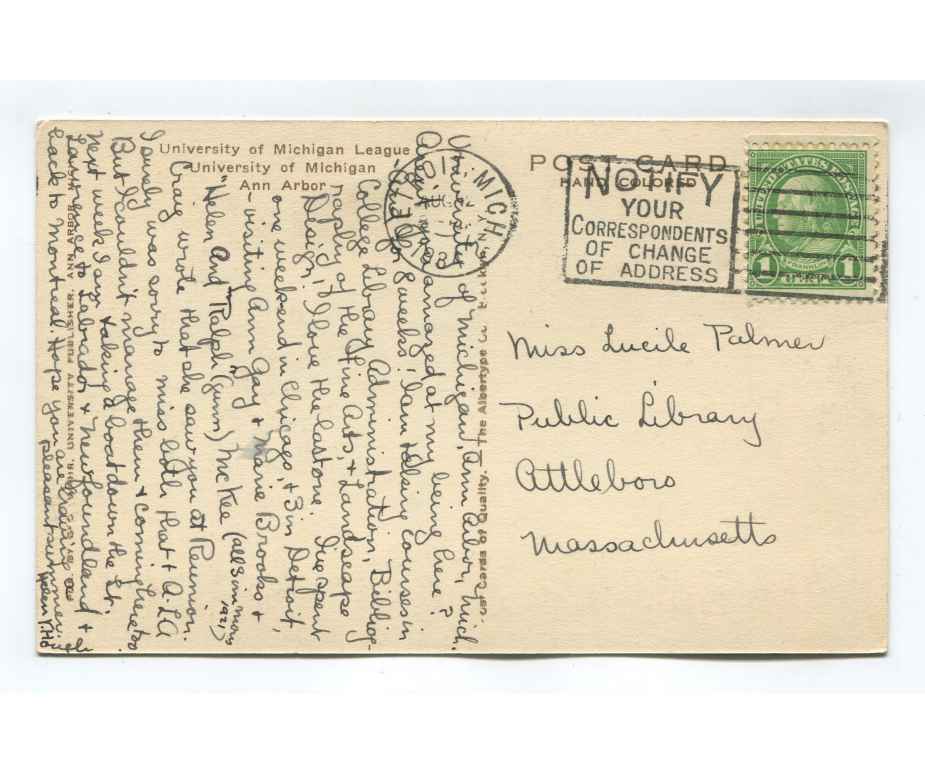 University of Michigan League
University of Michigan
Ann Arbor
POST CARD
HAND COLORED
MICH.
NOTIFY
YOUR
CORRESPONDENTS
OF CHANGE
OF ADDRESS
UNITED STATES POSTAGE
FRANKLIN
1 CENT 1
University of Michigan, Ann Arbor, Mich.
Aren't you amazed at my being here?
for 8 weeks! I am taking courses in
College Library Administration, Bibliog-
raphy of the Fine Arts, & Landscape
Design; I love the last one. I've spent
one weekend in Chicago, & 3 in Detroit,
visiting Ann Gay & Marie Brooks &
"Helen And Ralph (Gunn) McKee (all 3 in
1921)
Craig wrote that she saw you at Reunion.
I surely was sorry to miss both that & A.L.A.
But I couldn't manage them & coming here too.
Next week I am taking a boat down the St.
Lawrence to Labrador & Newfoundland &
back to Montreal. Hope you are having a
pleasant summer.
Helen Y.
The Albertype Co.
Post Cards of Quality. —
ANN ARBOR, MICH. UNIVERSITY PUBLISHER.
Miss Lucile Palmer
Public Library
Attleboro
Massachusetts